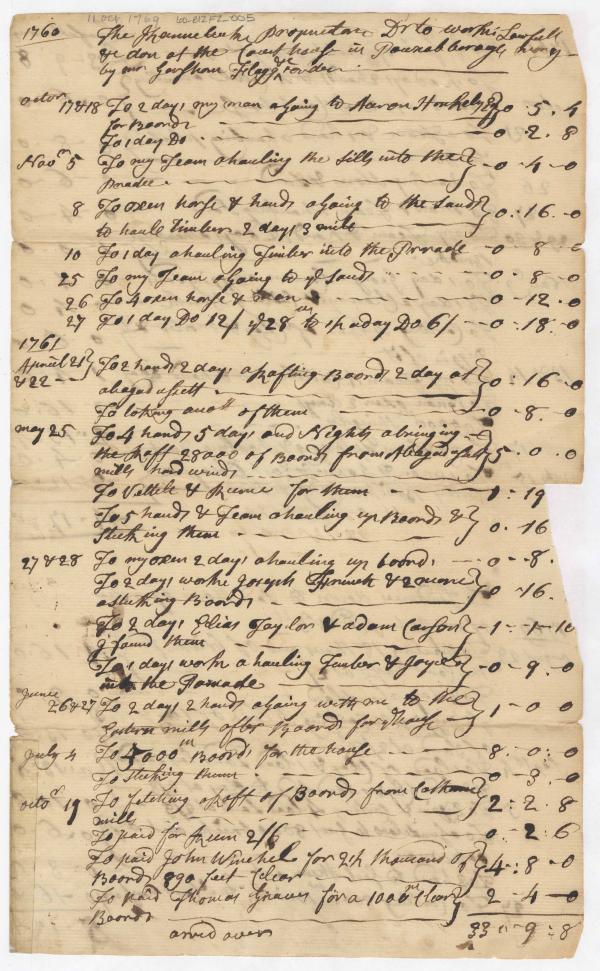 11 Oct 1769 60-012F2-005
1760 The Kennebeck Proprietors Dr to worke
&c don at the Court house in Pownalborough
by mr Gershom Flagg order
octor 17 & 18 To 2 days my man agoing to Aaron 0 . 5 . 4
for Boords
To 1 day Do - 0 . 2 . 8
Novr 5 To my Team ahauling the Sills into the - 0 - 4 - 0
8 To oxen horse & hands agoing to the Sands 0 : 16 . - 0
to haule timbers 2 days 3 mile
10 To 1 day ahauling Timber into the - 0 - 8 - 0
25 To my Team agoing to ye Sands - 0 - 8 - 0
26 To 4 oxen horse & man - 0 - 12 - 0
27 To 1 day Do 12/ ye 28 to a day Do 6/ - 0 . 18 . 0
1761
Aprail 21 & 22 To 2 hands 2 days arafting Boords 2 day at 0 : 16 - 0
To of them - 0 - 8 - 0
may 25 To 4 hands 5 days and Nights abringing
the raft 28000 of Boords from 5 . 0 . 0
mills hard winds
To Vittels & Rume for them - 1 : 19
To 5 hands & Team ahauling up Boords & 0 . 16
Sticking them
27 & 28 To my oxen 2 days ahauling up boords - 0 - 8 -
To 2 days worke Joseph & 2 more 0 - 16 .
asticking Boords
To 2 days Elias Taylor & adam Carson - 1 - 1 - 10
I found them
To 1 days work a hauling Timber & - 0 - 9 - 0
into the
June 26 & 27 To 2 days 2 hands agoing with me to the 1 - 0 - 0
Eastern mills after Boords for ye house
July 4 To 4000 m Boords for the house - 8 . 0 : 0
To Sticking them - 0 - 3 . 0
octor 19 To fetching araft of Boords from 2 : 2 . 8
mill
To paid for Rum 2/6 - 0 . 2 : 6
To paid John Winchel for thousand of 4 - : 8 - 0
Boords 890 feet Clear
To paid Thomas Graves for a 1000 m Clear 2 - 4 - 0
Boords
arred over 33 - 9 : 8